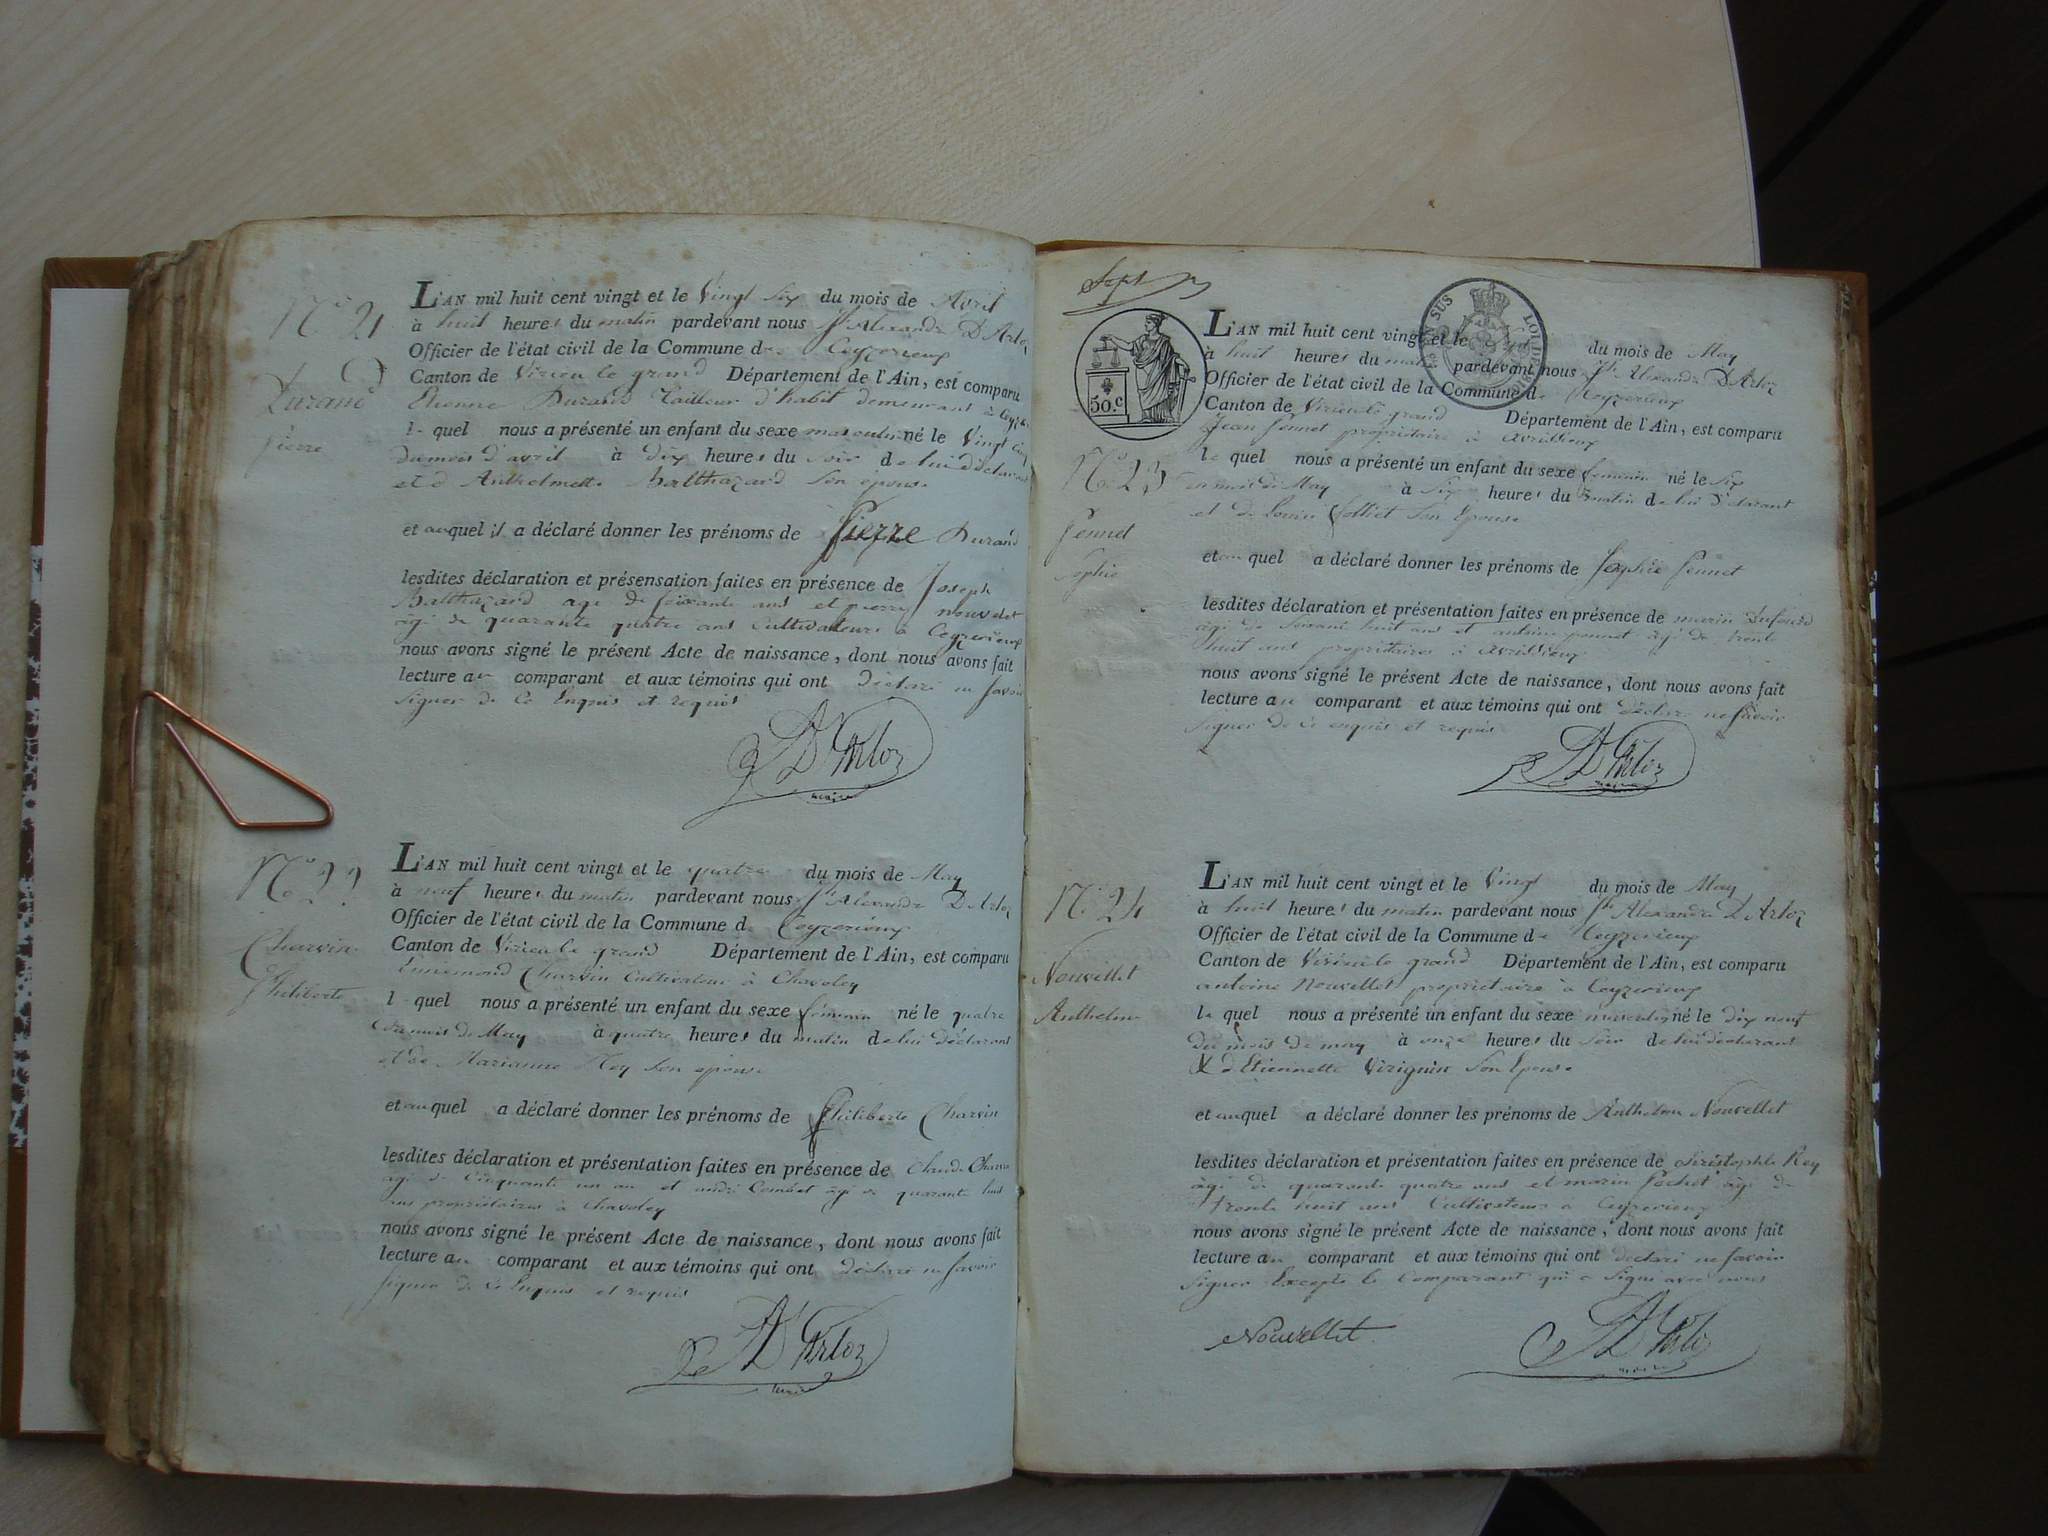 N.° 21
Durand
Pierre
L'AN mil huit cent vingt et le Vingt Six du mois de Avril
à huit heures du matin pardevant nous Jh Alexandre D'Arloz
Officier de l'état civil de la Commune de Ceyzerieux
Canton de Virieu le grand Département de l'Ain, est comparu
Etienne Durand Tailleur d'habit demeurant à
le quel nous a présenté un enfant du sexe masculin né le Vingt cinq
du mois d'avril à dix heures du soir de lui déclarant
et d Anthelmette Balthazard Son epouse
et auquel il a déclaré donner les prénoms de Pierre Durand
lesdites déclaration et présensation faites en présence de Joseph
Balthazard agé de soixante ans et pierre nouvelet
âgé de quarante quatre ans Cultivateurs à Ceyzerieux
nous avons signé le présent Acte de naissance, dont nous avons fait
lecture au comparant et aux témoins qui ont Déclaré ne savoir
signer de ce Enquis et requis
D'Arloz
maire
N.° 22
Charvin
Philiberte
L'AN mil huit cent vingt et le quatre du mois de May
à neuf heures du matin pardevant nous Jh Alexandre D'Arloz
Officier de l'état civil de la Commune de Ceyzerieux
Canton de Virieu le grand Département de l'Ain, est comparu
Ennemond Charvin Cultivateur à Chavoley
le quel nous a présenté un enfant du sexe féminin né le quatre
du mois de May à quatre heures du matin de lui déclarant
et de Marianne Rey Son epouse
et auquel a déclaré donner les prénoms de Philiberte Charvin
lesdites déclaration et présentation faites en présence de Claude Charvin
agé de Cinquante un an et andré agé de quarante huit
ans propriétaires à Chavoley
nous avons signé le présent Acte de naissance, dont nous avons fait
lecture au comparant et aux témoins qui ont déclaré ne savoir
signer de ce Enquis et requis
D'Arloz
maire
Sept
50.C
N.° 23
Pennet
Sophie
L'AN mil huit cent vingt et le Sept du mois de May
à huit heures du matin pardevant nous Jh Alexandre D'Arloz
Officier de l'état civil de la Commune de Ceyzerieux
Canton de Virieu le grand Département de l'Ain, est comparu
Jean Pennet propriétaire à avrissieux
le quel nous a présenté un enfant du sexe feminin né le Six
du mois de May à Six heures du matin de lui Déclarant
et de Louise Son Epouse
et au quel a déclaré donner les prénoms de Sophie Pennet
lesdites déclaration et présentation faites en présence de marin Dufourd
âgé de Soixante huit ans et antoine pennet âgé de trente
huit ans propriétaires à avrissieux
nous avons signé le présent Acte de naissance, dont nous avons fait
lecture au comparant et aux témoins qui ont déclaré ne savoir
signer de ce enquis et requis
D'Arloz
maire
N.° 24
Nouvellet
Anthelme
L'AN mil huit cent vingt et le Vingt du mois de May
à huit heures du matin pardevant nous Jh Alexandre D'Arloz
Officier de l'état civil de la Commune de Ceyzerieux
Canton de Virieu le grand Département de l'Ain, est comparu
antoine Nouvellet propriétaire à Ceyzerieux
le quel nous a présenté un enfant du sexe masculin né le dix neuf
du mois de may à onze heures du Soir de lui déclarant
& d Etiennette Virignin Son Epouse
et auquel a déclaré donner les prénoms de Anthelme Nouvellet
lesdites déclaration et présentation faites en présence de christophle Rey
âgé de quarante quatre ans et marin Pochet âgé de
trente huit ans Cultivateurs à Ceyzerieux
nous avons signé le présent Acte de naissance, dont nous avons fait
lecture au comparant et aux témoins qui ont déclaré ne savoir
signer Excepté le Comparant qui a Signé avec nous
Nouvellet
D'Arloz
maire